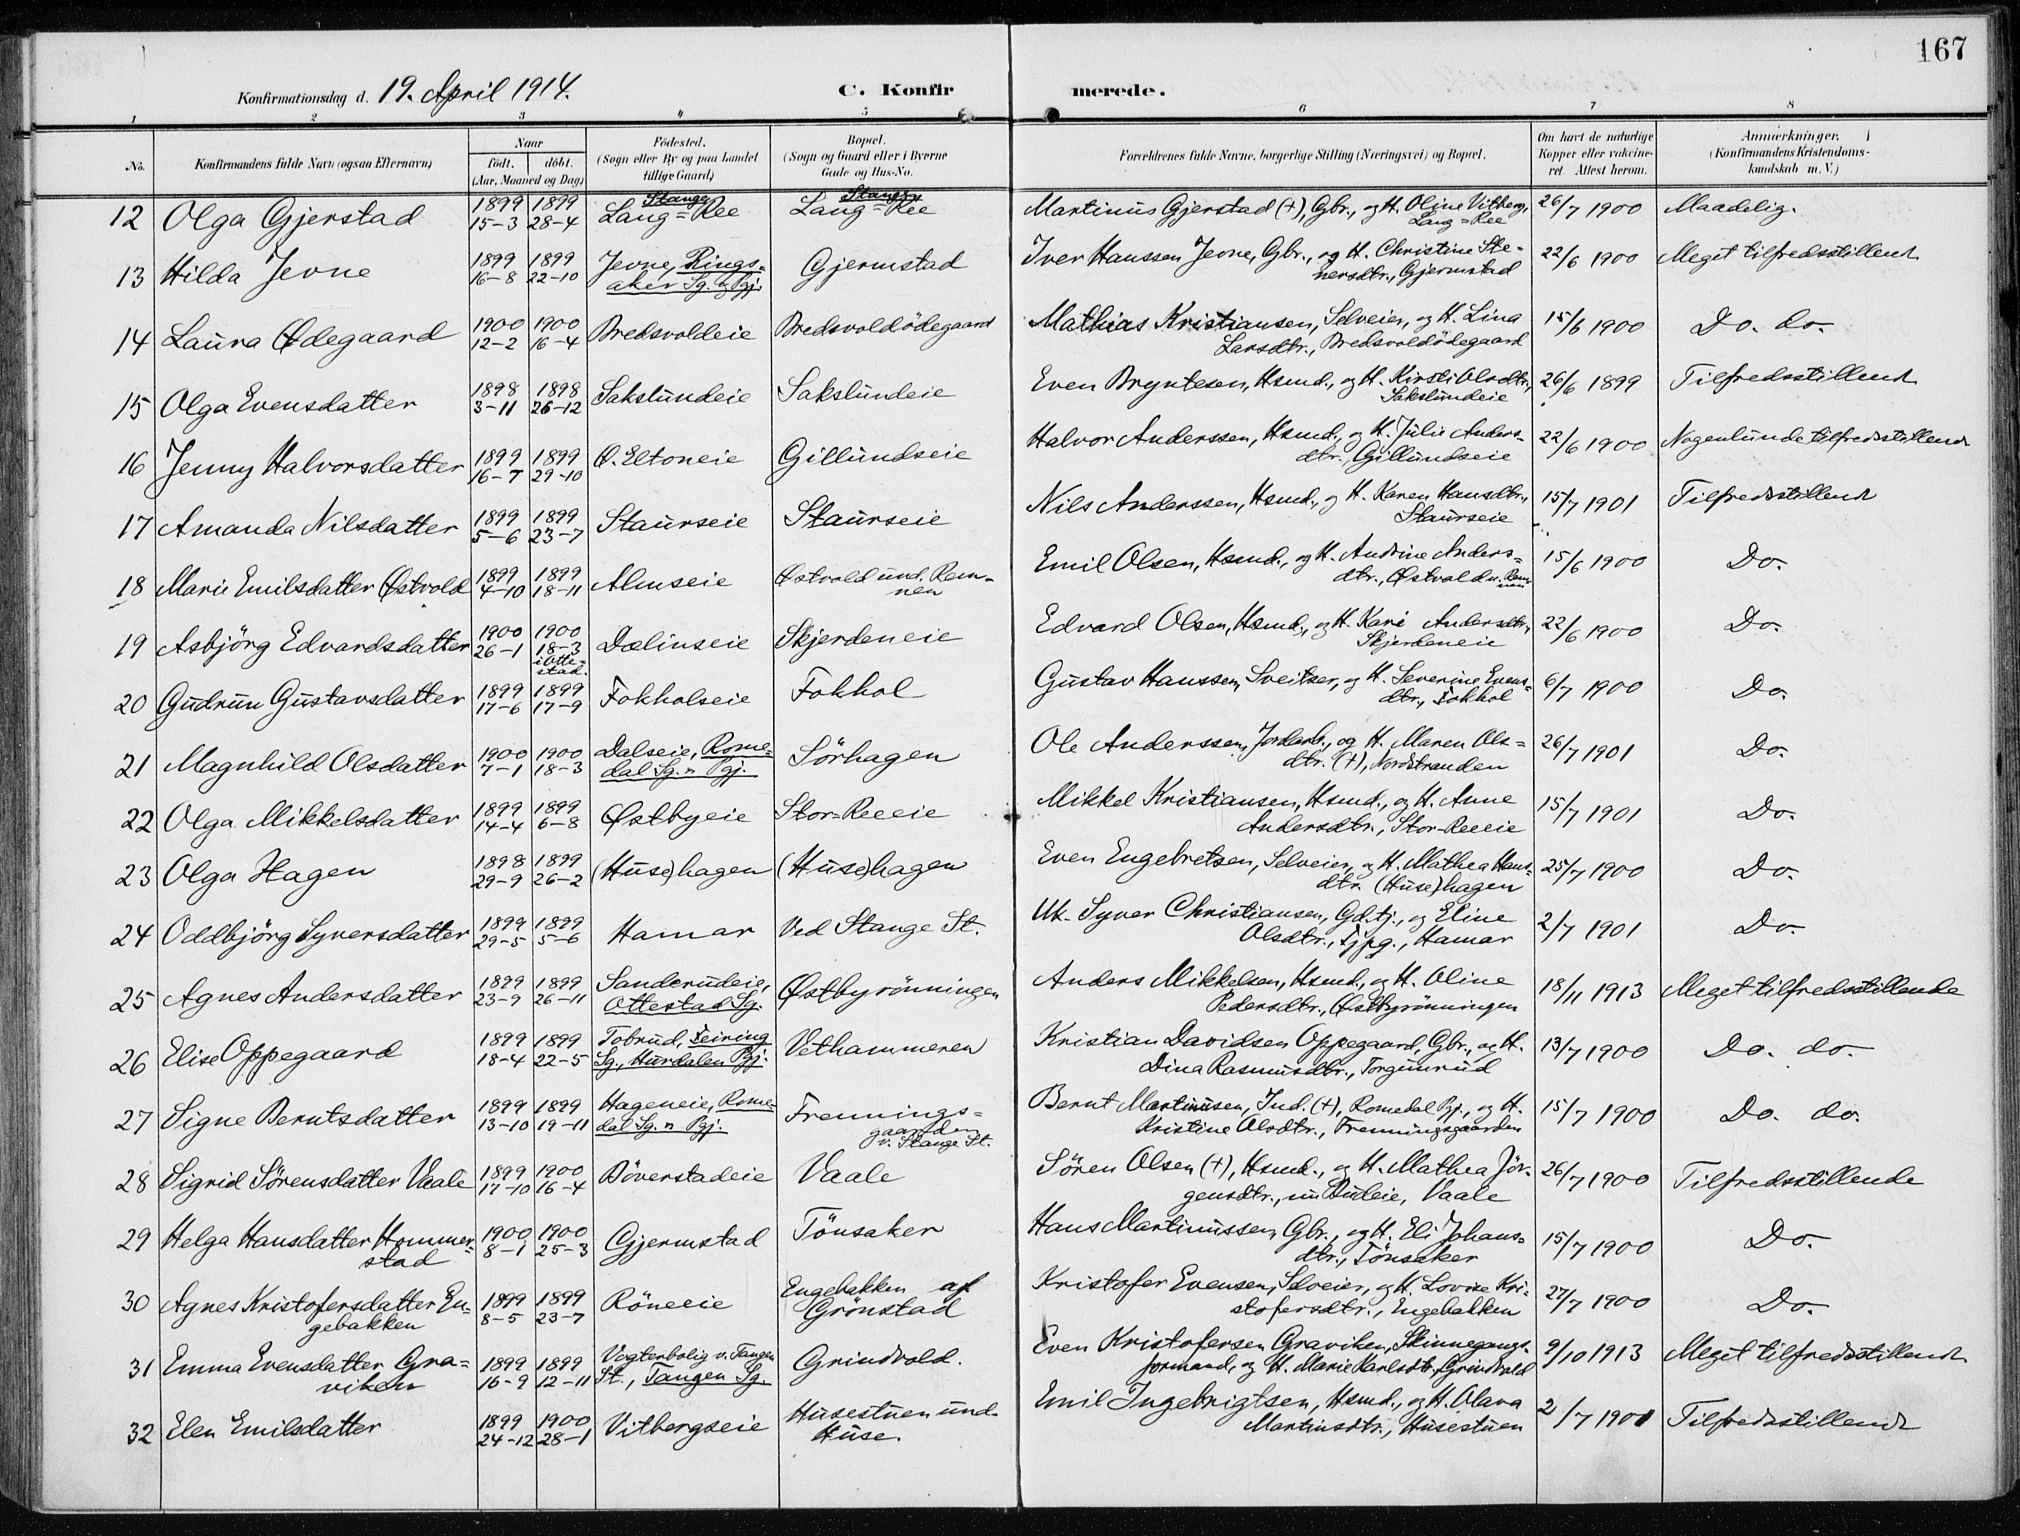 167
Konfirmationsdag d. 19. April 1914.
C. Konfirmerede.
1 2 3 4 5 6 7 8
No. | Konfirmandens fulde Navn (ogsaa Efternavn) | Naar født. døbt. (Aar, Maaned og Dag) | Födested. (Sogn eller By og paa Landet tillige Gaard) | Bopæl. (Sogn og Gaard eller i Byerne Gade og Hus-No. | Forældrenes fulde Navne, borgerlige Stilling (Næringsvei) og Bopæl. | Om havt de naturlige Kopper eller vakcineret. Attest herom. | Anmærkninger. (Konfirmandens Kristendomskundskab m. V.)
12 Olga Gjerstad | 1899 15-3 | 1899 28-4 | Stange Lang=Ree | Stange Lang=Ree | Martinus Gjerstad (+), Gbr., og H. Oline Vitberg, Lang=Ree | 26/7 1900 | Maadelig.
13 Hilda Jevne | 1899 16-8 | 1899 22-10 | Jevne, Ringsaker Sg. og Pgj. | Gjermstad | Iver Hanssen Jevne, Gbr., og H. Christine Stenersdtr., Gjermstad | 22/6 1900 | Meget tilfredsstillend
14 Laura Ødegaard | 1900 12-2 | 1900 16-4 | Bredsvoldeie | Bredsvoldödegaard | Mathias Kristiansen, Selveier, og H. Lina Larsdtr., Bredsvoldödegaard | 15/6 1900 | Do. do.
15 Olga Evensdatter | 1898 3-11 | 1898 26-12 | Sakslundeie | Sakslundeie | Even Bryntesen, Hsmd., og H. Kirsti Olsdtr., Sakslundeie | 26/6 1899 | Tilfredsstillend
16 Jenny Halvorsdatter | 1899 16-7 | 1899 29-10 | Ø. Eltoneie | Gillundseie | Halvor Anderssen, Hsmd., og H. Julie Andersdtr., Gillundseie | 22/6 1900 | Nogenlunde tilfredsstillend
17 Amanda Nilsdatter | 1899 5-6 | 1899 23-7 | Staurseie | Staurseie | Nils Anderssen, Hsmd., og H. Karen Hansdtr., Staurseie | 15/7 1901 | Tilfredsstillend
18 Marie Emilsdatter Østvold | 1899 4-10 | 1899 18-11 | Almseie | Østvold und. Remnen | Emil Olsen, Hsmd., og H. Andrine Andersdtr., Østvold u. Remnen | 15/6 1900 | Do.
19 Asbjörg Edvardsdatter | 1900 26-1 | 1900 18-3 i Ottestad. | Dælinseie | Skjerdeneie | Edvard Olsen, Hsmd., og H. Kari Andersdtr., Skjerdeneie | 22/6 1900 | Do.
20 Gudrun Gustavsdatter | 1899 17-6 | 1899 17-9 | Fokholseie | Fokhol | Gustav Hanssen, Sveitser, og H. Severine Evensdtr., Fokhol | 6/7 1900 | Do.
21 Magnhild Olsdatter | 1900 7-1 | 1900 18-3 | Dalseie, Romedal Sg. og Pgj. | Sörhagen | Ole Anderssen, Jordarb., og H. Maren Olsdtr. (+), Nordstranden | 26/7 1901 | Do.
22 Olga Mikkelsdatter | 1899 14-4 | 1899 6-8 | Østbyeie | Stor-Reeeie | Mikkel Kristiansen, Hsmd., og H. Anne Andersdtr., Stor-Reeeie | 15/7 1901 | Do.
23 Olga Hagen | 1898 29-9 | 1899 26-2 | (Huse)hagen | (Huse)hagen | Even Engebretsen, Selveier, og H. Mathea Hansdtr. (Huse)hagen | 25/7 1900 | Do.
24 Oddbjörg Syversdatter | 1899 29-5 | 1899 5-6 | Hamar | Ved Stange St. | Uk. Syver Christiansen, Gd.tj., og Eline Olsdtr., Tjpg., Hamar | 2/7 1901 | Do.
25 Agnes Andersdatter | 1899 23-9 | 1899 26-11 | Sanderudeie, Ottestad Sg. | Østbyrönningen | Anders Mikkelsen, Hsmd., og H. Oline Pedersdtr., Østbyrönningen | 18/11 1913 | Meget tilfredsstillende
26 Elise Oppegaard | 1899 18-4 | 1899 22-5 | Tobrud, Feiring Sg., Hurdalen Pgj. | Vethammeren | Kristian Davidsen Oppegaard, Gbr., og H. Dina Rasmusdtr., Torgunrud | 13/7 1900 | Do. do.
27 Signe Berntsdatter | 1899 13-10 | 1899 19-11 | Hageneie, Romedal Sg. og Pgj. | Frenningsgaarden v. Stange St. | Bernt Martinusen, Ind. (+), Romedal Pgj., og H. Kristine Olsdtr., Frenningsgaarden | 15/7 1900 | Do. do.
28 Sigrid Sörensdatter Vaale | 1899 17-10 | 1900 16-4 | Böverstadeie | Vaale | Sören Olsen (+), Hsmd., og H. Mathea Jörgensdtr., nu Buleie, Vaale | 26/7 1900 | Tilfredsstillende
29 Helga Hansdatter Hommerstad | 1900 8-1 | 1900 25-3 | Gjermstad | Tönsaker | Hans Martinussen, Gbr., og H. Eli Johansdtr., Tönsaker | 15/7 1900 | Do.
30 Agnes Kristofersdatter Engebakken | 1899 8-5 | 1899 23-7 | Röneeie | Engebakken af Grönstad | Kristofer Evensen, Selveier, og H. Lovise Kristofersdtr., Engebakken | 27/7 1900 | Do.
31 Emma Evensdatter Graviken | 1899 16-9 | 1899 12-11 | Vogterbolig v. Tangen St., Tangen Sg. | Grindvold. | Even Kristofersen Graviken, Skinnegangsformand, og H. Marie Karlsdtr., Grindvold | 9/10 1913 | Meget tilfredsstillend
32 Elen Emilsdatter | 1899 24-12 | 1900 28-1 | Vitbergseie | Husestuen und. Huse. | Emil Ingebrigtsen, Hsmd., og H. Olava Martinsdtr., Husestuen | 2/7 1901 | Tilfredsstillend